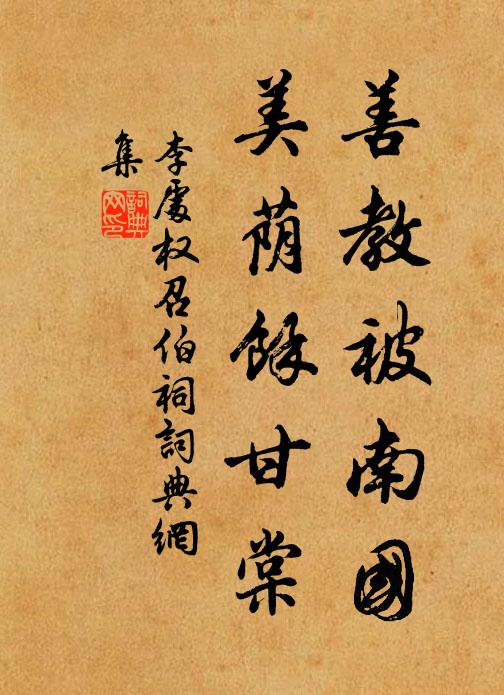 善教被南國
美荫餘甘棠
李處权召伯祠詞典網
集
詞典
网印